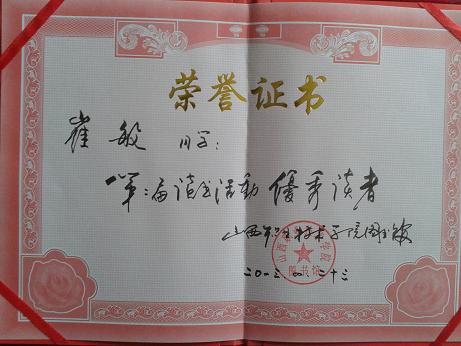 荣誉证书
崔敏 同学：
第二届读书活动 优秀读者
山西职工技术学院图书馆
图书馆
二〇一三.四.二十三